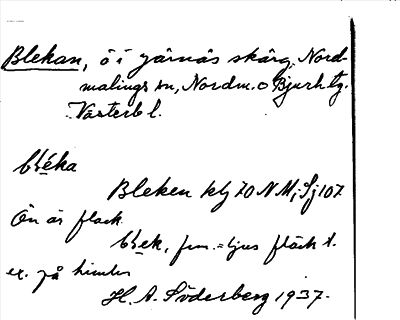 Blekan, ö i Järnäs skärg, Nord-
malings sn, Nordm. o Bjurh. tg.
Västerb l.
bléka
Bleken klj 70 NM; Sj 107
Ön är flack
blek, fem. = ljus fläck t.
ex. på himlen
H. A. Söderberg 1937.